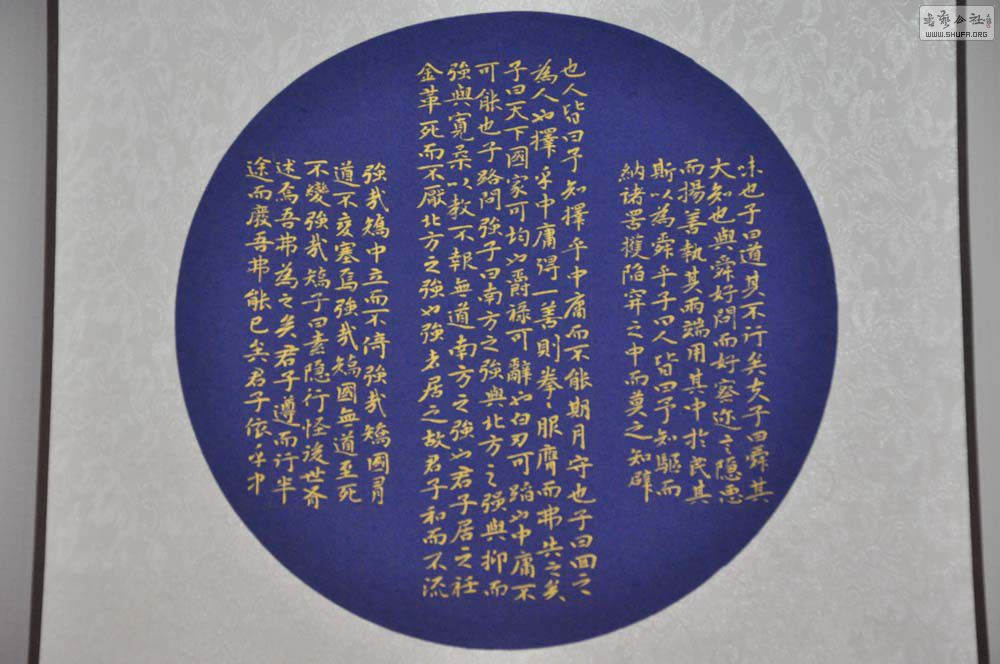 味也子曰道其不行矣夫子曰舜其
大知也與舜好問而好察迩言隱惡
而揚善執其兩端用其中於民其
斯以為舜乎子曰人皆曰予知驅而
納諸罟擭陷穽之中而莫之知辟
也人皆曰予知擇乎中庸而不能期月守也子曰回之
為人也擇乎中庸得一善則拳〻服膺而弗失之矣
子曰天下國家可均也爵祿可辭也白刃可蹈也中庸不
可能也子路問強子曰南方之強與北方之強與抑而
強與寬柔以教不報無道南方之強也君子居之衽
金革死而不厭北方之強也強者居之故君子和而不流
強哉矯中立而不倚強哉矯國有
道不變塞焉強哉矯國無道至死
不變強哉矯子曰素隱行怪後世有
述焉吾弗為之矣君子遵而行半
途而廢吾弗能已矣君子依乎中
书艺公社
WWW.SHUFA.ORG